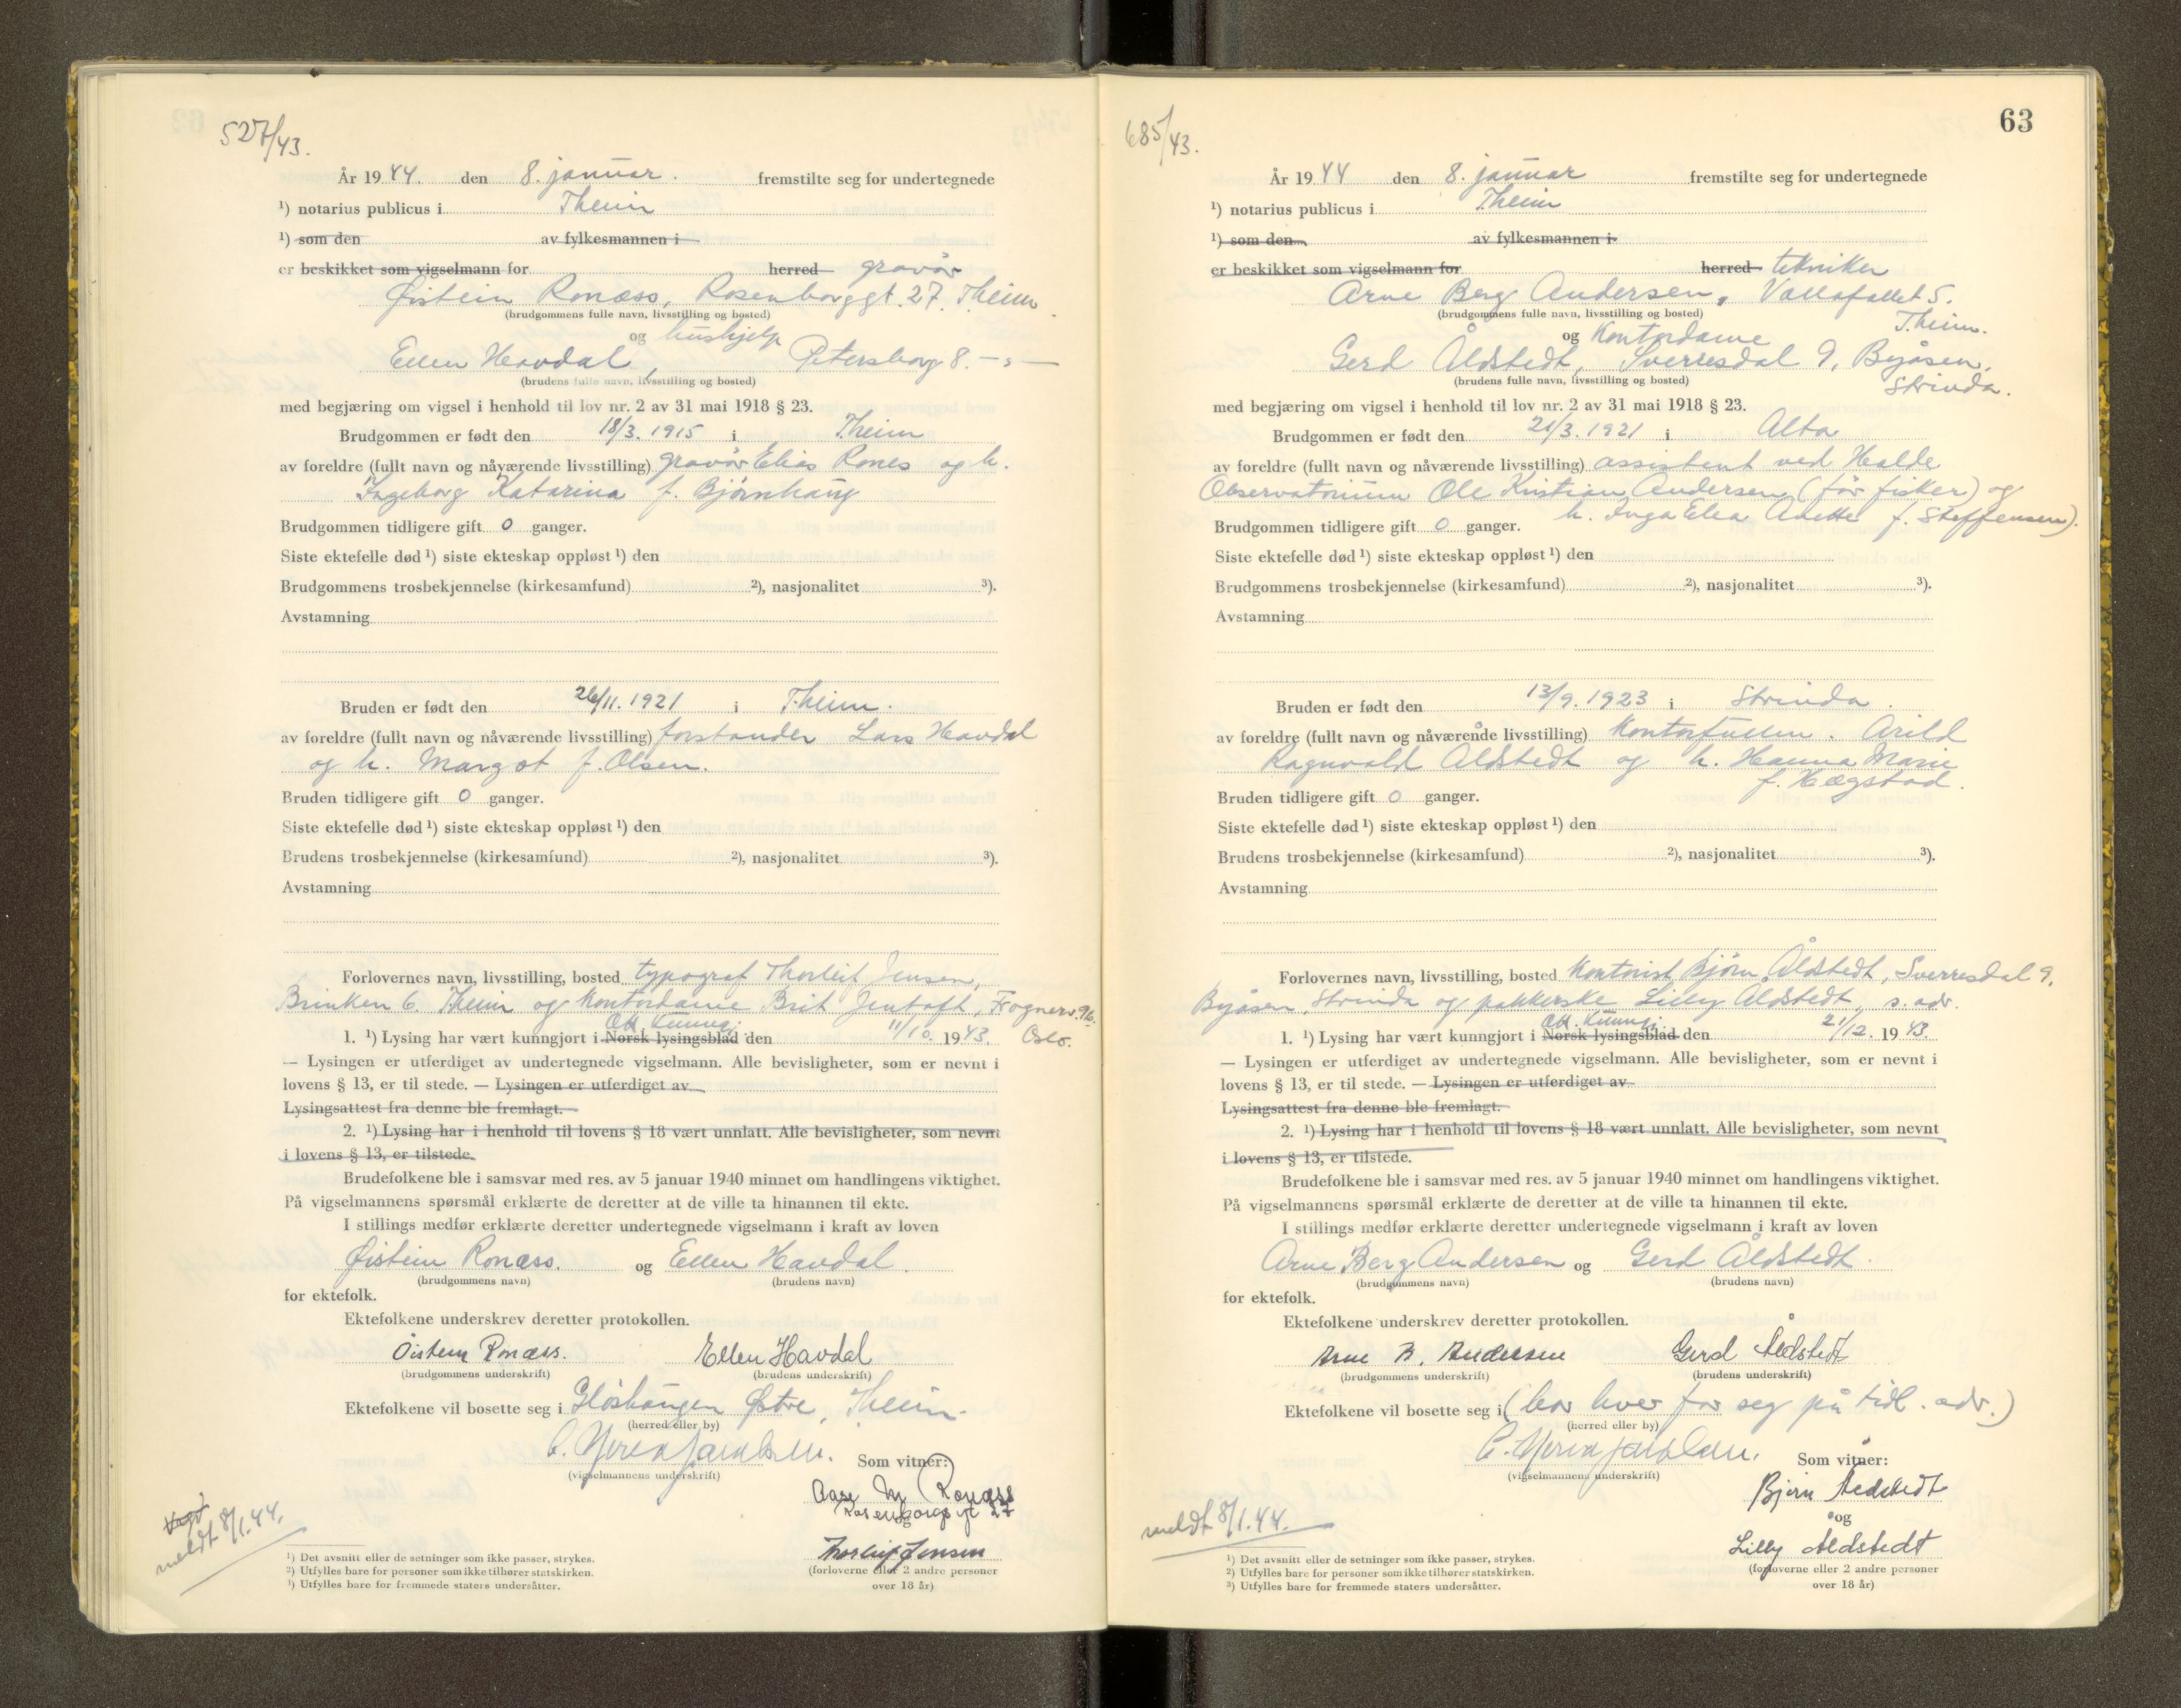 527/43.
År 1944. den 8. januar. fremstilte seg for undertegnede
¹) notarius publicus i Theim
¹) som den av fylkesmannen i
er beskikket som vigselmann for herred gravør
Øistein Ronæss, Rosenborggt. 27. Theim
(brudgommens fulle navn, livsstilling og bosted)
og hushjelp
Ellen Havdal, Petersborg 8. — " —
(brudens fulle navn, livsstilling og bosted)
med begjæring om vigsel i henhold til lov nr. 2 av 31 mai 1918 § 23.
Brudgommen er født den 18/3. 1915 i Theim
av foreldre (fullt navn og nåværende livsstilling) gravør Elias Rones og h.
Ingeborg Katarina f. Bjørnhaug
Brudgommen tidligere gift 0 ganger.
Siste ektefelle død ¹) siste ekteskap oppløst ¹) den
Brudgommens trosbekjennelse (kirkesamfund) ²), nasjonalitet ³).
Avstamning
Bruden er født den 26/11. 1921 i Theim.
av foreldre (fullt navn og nåværende livsstilling) forstander Lars Havdal
og h. Margot f. Olsen.
Bruden tidligere gift 0 ganger.
Siste ektefelle død ¹) siste ekteskap oppløst ¹) den
Brudens trosbekjennelse (kirkesamfund) ²), nasjonalitet ³).
Avstamning
Forlovernes navn, livsstilling, bosted typograf Thorleif Jensen,
Brinken 6. Theim og kontordame Brit Jentoft, Fognerv. 96.
Off. kunngj. Oslo.
1. ¹) Lysing har vært kunngjort i Norsk lysingsblad den 11/10. 1943.
— Lysingen er utferdiget av undertegnede vigselmann. Alle bevisligheter, som er nevnt i
lovens § 13, er til stede. — Lysingen er utferdiget av
Lysingsattest fra denne ble fremlagt.
2. ¹) Lysing har i henhold til lovens § 18 vært unnlatt. Alle bevisligheter, som nevnt
i lovens § 13, er tilstede.
Brudefolkene ble i samsvar med res. av 5 januar 1940 minnet om handlingens viktighet.
På vigselmannens spørsmål erklærte de deretter at de ville ta hinannen til ekte.
I stillings medfør erklærte deretter undertegnede vigselmann i kraft av loven
Øistein Ronæss. og Ellen Havdal.
(brudgommens navn) (brudens navn)
for ektefolk.
Ektefolkene underskrev deretter protokollen.
Öistein Ronæss. Ellen Havdal
(brudgommens underskrift) (brudens underskrift)
Ektefolkene vil bosette seg i Gløshaugen Østre, Theim.
(herred eller by)
(vigselmannens underskrift)
Som vitner:
Aase Ronæss
Rosenborgs gt 27
og
Thorleif Jensen
(forloverne eller 2 andre personer
over 18 år)
meldt 8/1.44.
¹) Det avsnitt eller de setninger som ikke passer, strykes.
²) Utfylles bare for personer som ikke tilhører statskirken.
³) Utfylles bare for fremmede staters undersåtter.
63
685/43.
År 1944 den 8. januar fremstilte seg for undertegnede
¹) notarius publicus i Theim
¹) som den av fylkesmannen i
er beskikket som vigselmann for herred tekniker
Arne Berg Andersen, Vollafallet 5.
(brudgommens fulle navn, livsstilling og bosted) Theim.
og kontordame
Gerd Åldstedt, Sverresdal 9, Byåsen,
(brudens fulle navn, livsstilling og bosted) Strinda.
med begjæring om vigsel i henhold til lov nr. 2 av 31 mai 1918 § 23.
Brudgommen er født den 21/3. 1921 i Alta
av foreldre (fullt navn og nåværende livsstilling) assistent ved Halde
Observatorium Ole Kristian Andersen (før fisker) og
h. Inga Elea Anette f. Steffensen).
Brudgommen tidligere gift 0 ganger.
Siste ektefelle død ¹) siste ekteskap oppløst ¹) den
Brudgommens trosbekjennelse (kirkesamfund) ²), nasjonalitet ³).
Avstamning
Bruden er født den 13/9. 1923 i Strinda.
av foreldre (fullt navn og nåværende livsstilling) kontorfullm. Arild
Ragnvald Åldstedt og h. Hanna Marie
f. Hægstad.
Bruden tidligere gift 0 ganger.
Siste ektefelle død ¹) siste ekteskap oppløst ¹) den
Brudens trosbekjennelse (kirkesamfund) ²), nasjonalitet ³).
Avstamning
Forlovernes navn, livsstilling, bosted kontorist Bjørn Åldstedt, Sverresdal 9,
Byåsen, Strinda og pakkerske Lilly Åldstedt, s. adr.
Off. kunngj.
1. ¹) Lysing har vært kunngjort i Norsk lysingsblad den 21/12. 1943.
— Lysingen er utferdiget av undertegnede vigselmann. Alle bevisligheter, som er nevnt i
lovens § 13, er til stede. — Lysingen er utferdiget av
Lysingsattest fra denne ble fremlagt.
2. ¹) Lysing har i henhold til lovens § 18 vært unnlatt. Alle bevisligheter, som nevnt
i lovens § 13, er tilstede.
Brudefolkene ble i samsvar med res. av 5 januar 1940 minnet om handlingens viktighet.
På vigselmannens spørsmål erklærte de deretter at de ville ta hinannen til ekte.
I stillings medfør erklærte deretter undertegnede vigselmann i kraft av loven
Arne Berg Andersen og Gerd Åldstedt.
(brudgommens navn) (brudens navn)
for ektefolk.
Ektefolkene underskrev deretter protokollen.
Arne B. Andersen Gerd Åldstedt
(brudgommens underskrift) (brudens underskrift)
Ektefolkene vil bosette seg i (bor hver for seg på tidl. adr.)
(herred eller by)
(vigselmannens underskrift)
Som vitner:
Bjørn Åldstedt
og
Lilly Åldstedt
(forloverne eller 2 andre personer
over 18 år)
meldt 8/1.44.
¹) Det avsnitt eller de setninger som ikke passer, strykes.
²) Utfylles bare for personer som ikke tilhører statskirken.
³) Utfylles bare for fremmede staters undersåtter.